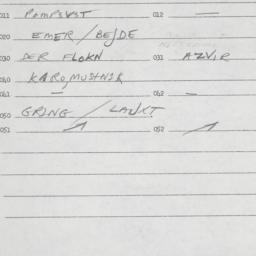 011 POMPSVST 012 —
020 EMER / BEJDE
030 DER FLOKN 031 AZVIR
040 KAROJMUSHNIK
041 — 042 —
050 GRING / LAUKT
051 052